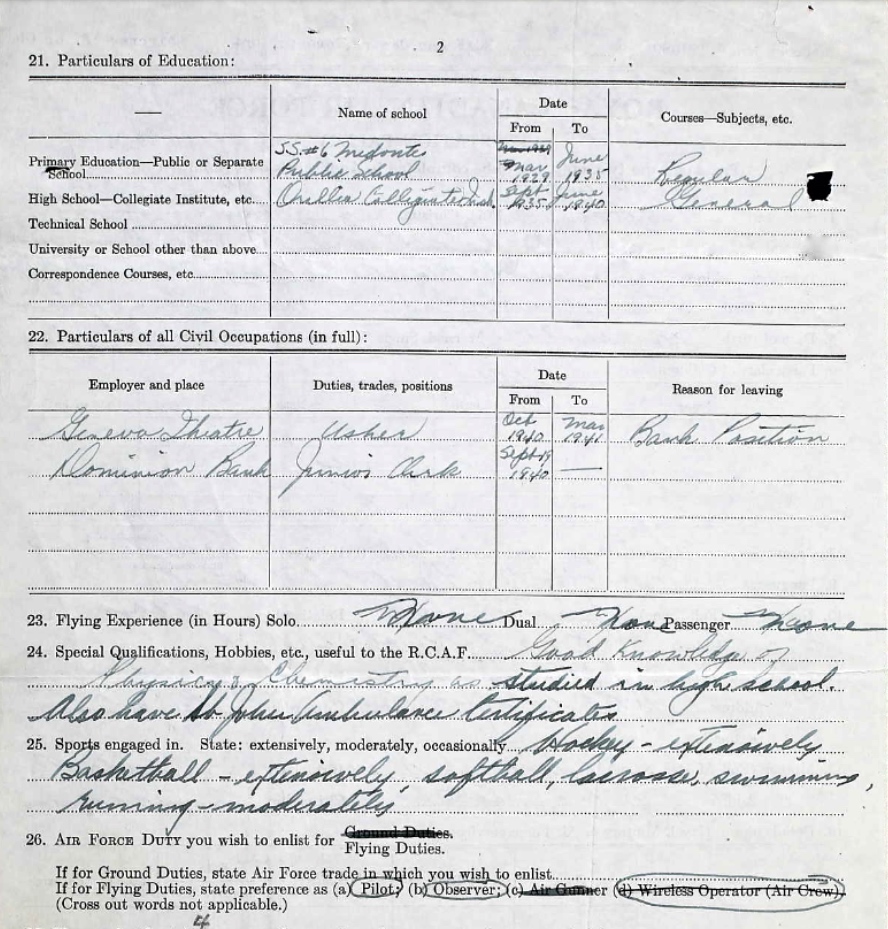 2
21. Particulars of Education:
— Name of school Date Courses—Subjects, etc.
From To
Primary Education—Public or Separate School S.S. #6 Medonte Public School Mar 1929 June 1935 Regular
High School—Collegiate Institute, etc. Orillia Collegiate Inst. Sept 1935 June 1940 General
Technical School
University or School other than above
Correspondence Courses, etc.
22. Particulars of all Civil Occupations (in full):
Employer and place Duties, trades, positions Date Reason for leaving
From To
Geneva Theatre Usher Oct 1940 Mar 1941 Bank Position
Dominion Bank Junior Clerk Sept 1940 —
23. Flying Experience (in Hours) Solo None Dual None Passenger None
24. Special Qualifications, Hobbies, etc., useful to the R.C.A.F. Good Knowledge of
Physics & Chemistry as studied in high school.
Also have St. John Ambulance Certificates
25. Sports engaged in. State: extensively, moderately, occasionally Hockey - extensively
Basketball - extensively, softball, lacrosse, swimming,
running - moderately
26. AIR FORCE DUTY you wish to enlist for Ground Duties.
Flying Duties.
If for Ground Duties, state Air Force trade in which you wish to enlist
If for Flying Duties, state preference as (a) Pilot; (b) Observer; (c) Air Gunner (d) Wireless Operator (Air Crew).
(Cross out words not applicable.)